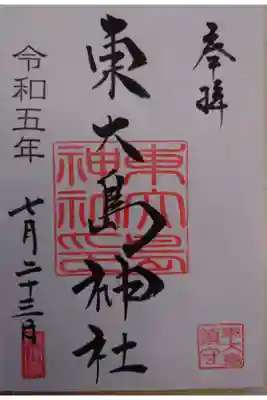 奉拝
東大島神社
東大島
神社印
東大島
鎮守
令和五年
七月二十三日